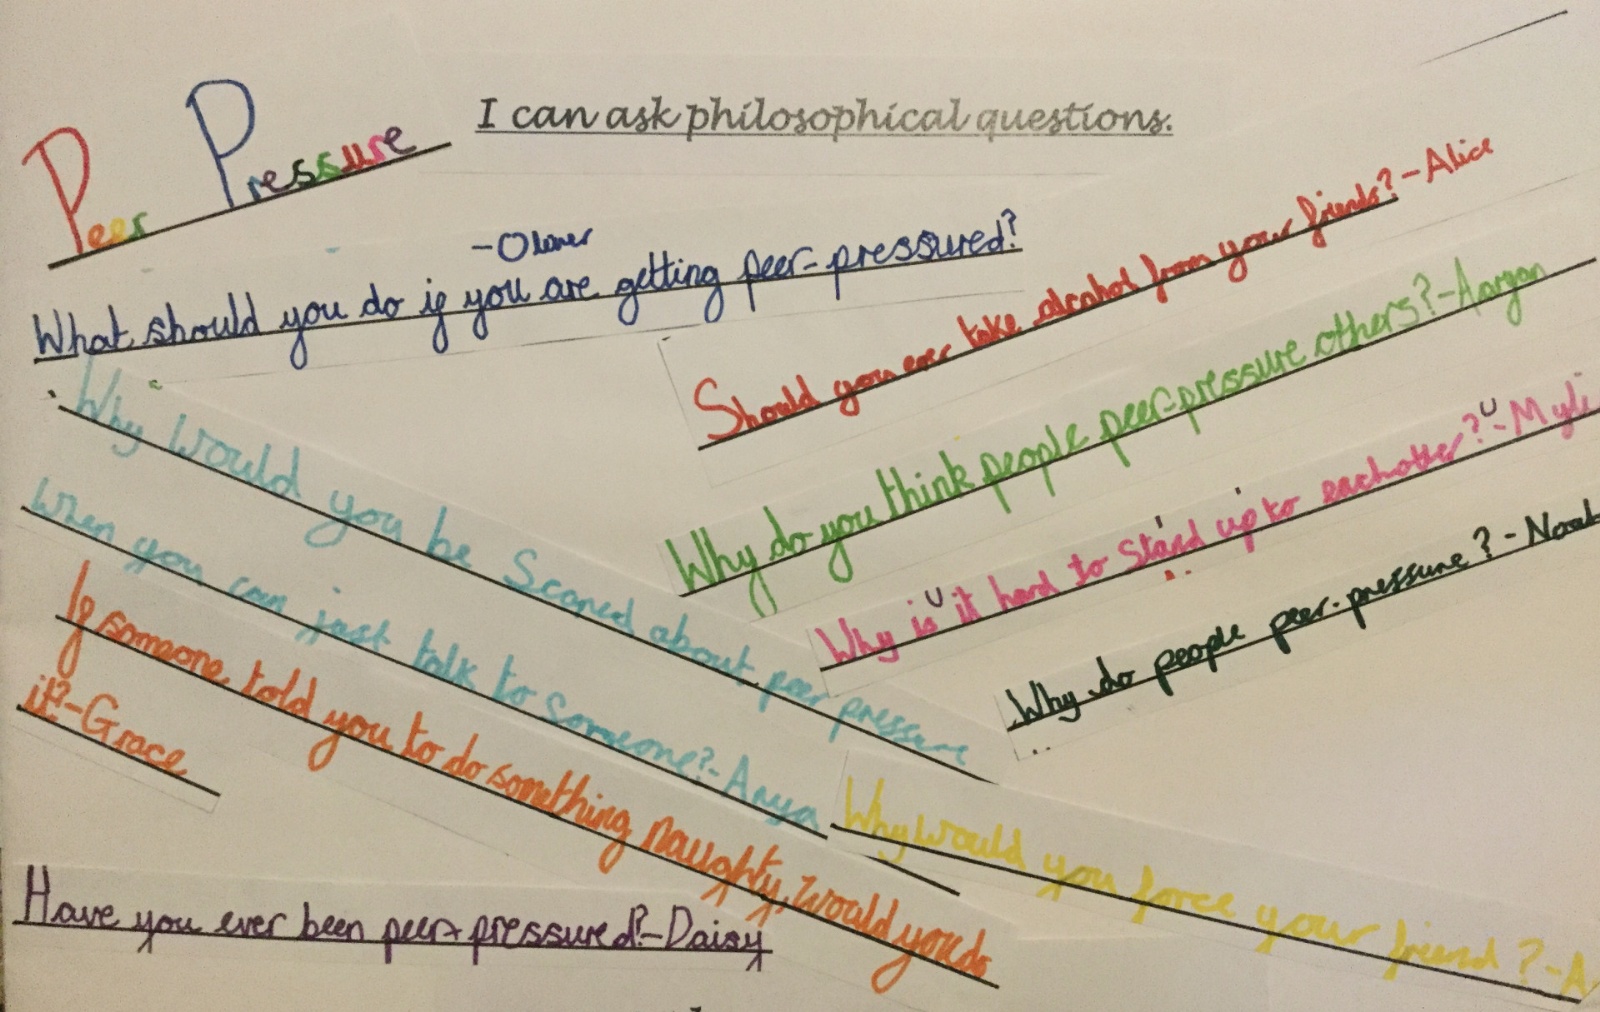 Peer Pressure
I can ask philosophical questions.
What should you do if you are getting peer-pressured?
-Oliver
Should you ever take alcohol from your friends? -Alice
Why do you think people peer-pressure others? -Aaryan
Why is it hard to stand up to eachother? -Myli
Why do people peer-pressure? -Noah
Why would you be Scared about peer pressure
when you can just talk to someone? -Anya
If someone told you to do something naughty, would you do
it? -Grace
Why would you force your friend? -A
Have you ever been peer-pressured? -Daisy